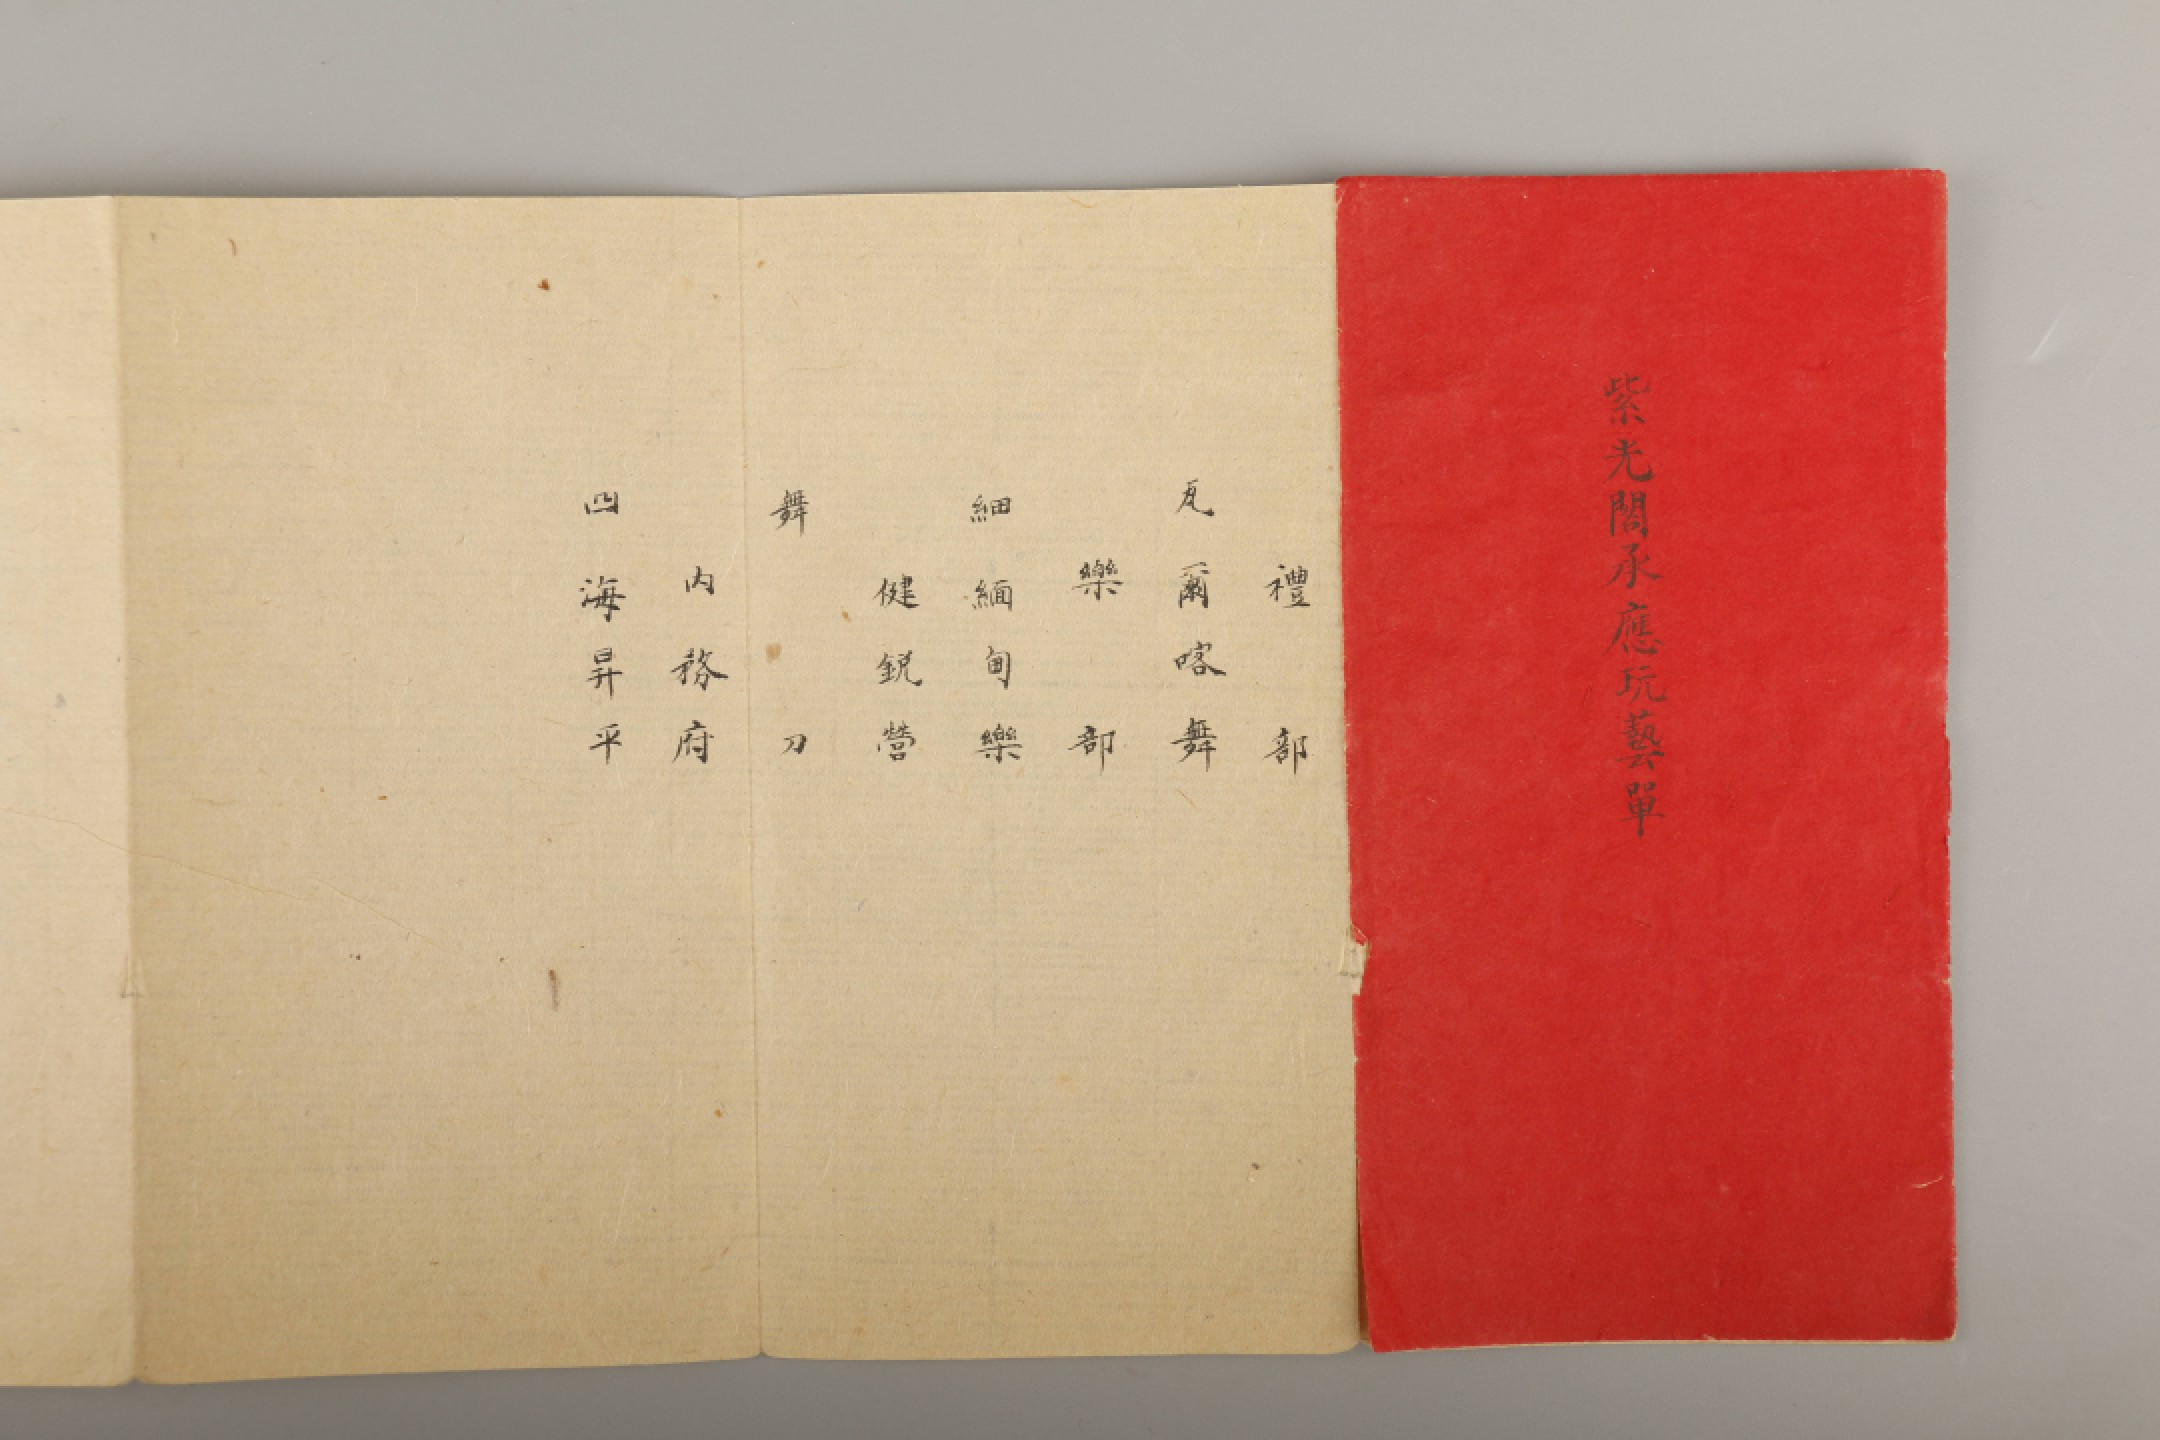 紫光閣承應玩藝單
禮部
瓦爾喀舞
樂部
細緬甸樂
健銳營
舞刀
內務府
四海昇平